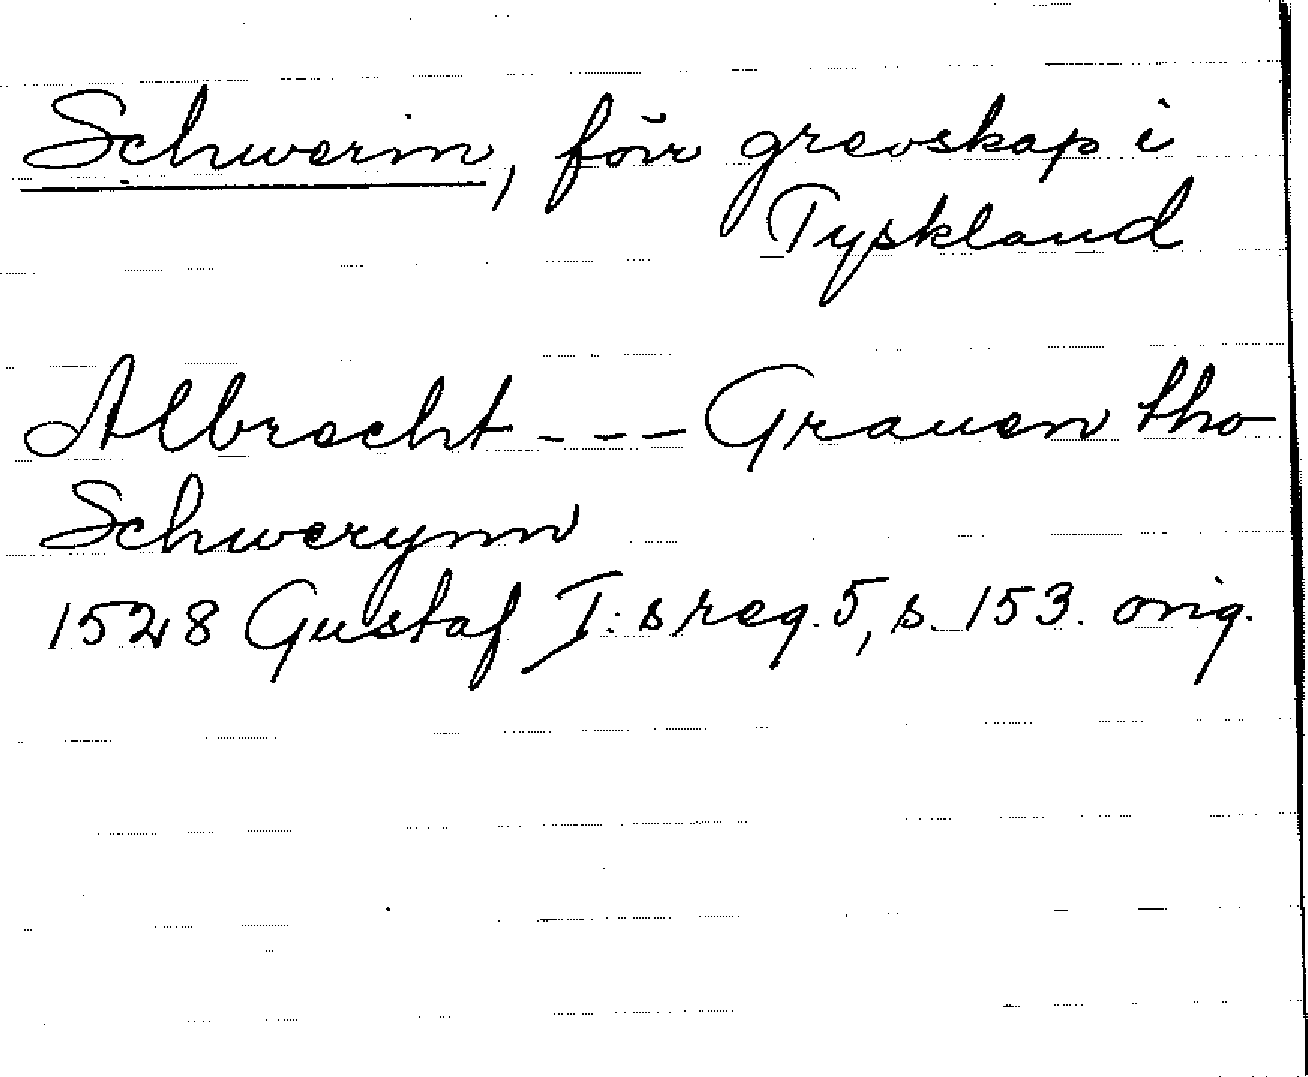 Schwerin, förr grevskap i
Tyskland
Albrecht --- Grauen tho
Schwerynn
1528 Gustaf I:s reg. 5, s. 153. orig.